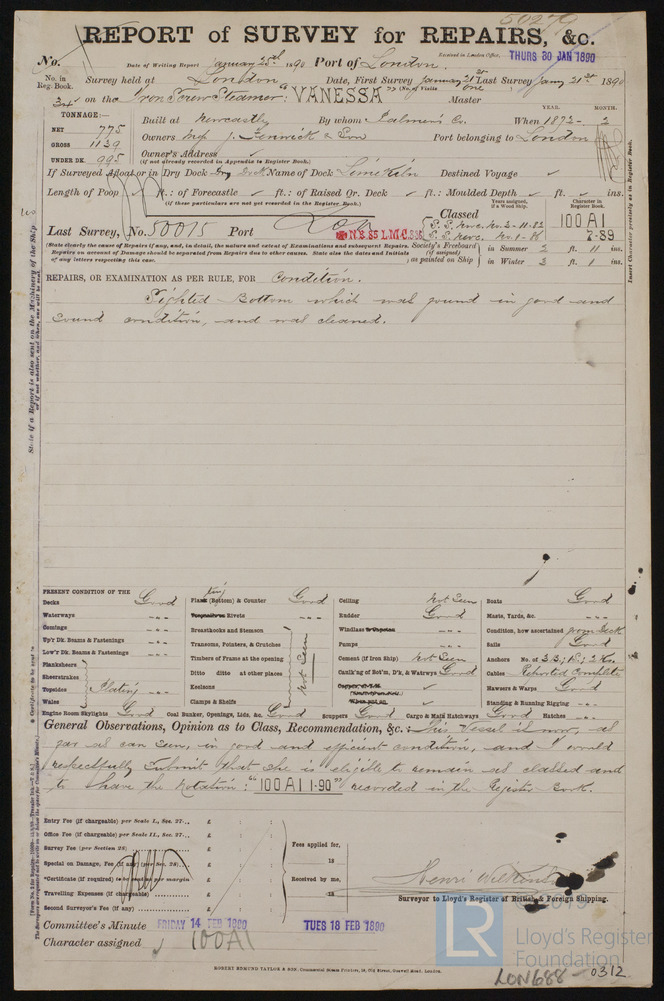 50279
REPORT of SURVEY for REPAIRS, &c.
Received in London Office, THURS 30 JAN 1890
No. Date of Writing Report January 25th 1890 Port of London.
No. in Reg. Book. Survey held at London Date, First Survey January 21st Last Survey Jany 21st 1890
(No. of Visits one)
34 on the Iron Screw Steamer "VANESSA" Master
TONNAGE:— YEAR. MONTH.
NET 775 Built at Newcastle By whom Palmers Co. When 1872 - 2
GROSS 1139 Owners J. Fenwick & Son Port belonging to London
UNDER DK. 995 Owner's Address
(if not already recorded in Appendix to Register Book.)
If Surveyed Afloat or in Dry Dock Dry Dock Name of Dock Limekiln Destined Voyage
Length of Poop ft.: of Forecastle ft.: of Raised Qr. Deck ft.: Moulded Depth ft. ins.
(if these particulars are not yet recorded in the Register Book.)
Years assigned, if a Wood Ship. Character in Register Book.
Last Survey, No. 50015 Port Lon Classed 100 A1
N.E.S. 85 L.M.C. 7.89
(State clearly the cause of Repairs if any, and, in detail, the nature and extent of Examinations and subsequent Repairs.
Repairs on account of Damage should be separated from Repairs due to other causes. State also the dates and Initials
of any letters respecting this case.
Society's Freeboard (if assigned) as painted on Ship in Summer 2 ft. 11 ins.
in Winter 3 ft. 1 ins.
REPAIRS, OR EXAMINATION AS PER RULE, FOR Condition.
Sighted Bottom which was found in good and
sound condition, and was cleaned.
State if a Report is also sent on the Machinery of the Ship
Insert Character precisely as in Register Book.
PRESENT CONDITION OF THE
Decks Good Plank (Bottom) & Counter Good Ceiling Not Seen Boats Good
Waterways Rivets Rudder Good Masts, Yards, &c.
Comings Breasthooks and Stemson Windlass Condition, how ascertained from Deck
Up'r Dk. Beams & Fastenings Transoms, Pointers, & Crutches Pumps Sails Good
Low'r Dk. Beams & Fastenings Timbers of Frame at the opening Cement (if Iron Ship) Not Seen Anchors No. of 3 B; 1 S; 2 K
Planksheers Ditto ditto at other places Caulk'ng of Bot'm, D'k, & Watrwys Good Cables Reported Complete
Sheerstrakes Keelsons Not Seen Hawsers & Warps Good
Topsides Plating Clamps & Shelfs Standing & Running Rigging
Wales
Engine Room Skylights Good Coal Bunker, Openings, Lids, &c. Good Scuppers Good Cargo & Main Hatchways Good Hatches
General Observations, Opinion as to Class, Recommendation, &c.: This Vessel is now, as
far as can seen, in good and efficient condition, and I would
respectfully submit that she is eligible to remain as classed and
to have the Notation: "100 A1 1-90" recorded in the Register Book.
Entry Fee (if chargeable) per Scale I., Sec. 27... £ : :
Office Fee (if chargeable) per Scale II., Sec. 27... £ : : Fees applied for,
Survey Fee (per Section 28) £ : : 18
Special on Damage, Fee (if any) (per Sec. 28) £ : :
*Certificate (if required) to be sent as per margin £ : : Received by me,
Travelling Expenses (if chargeable) £ : : 18
Second Surveyor's Fee (if any) £ : :
Henri Wilkins
Surveyor to Lloyd's Register of British & Foreign Shipping.
Committee's Minute FRIDAY 14 FEB 1890 TUES 18 FEB 1890
Character assigned 100A1
LR
Lloyd's Register
Foundation
ROBERT EDMUND TAYLOR & SON, Commercial Steam Printers, 19, Old Street, Goswell Road, London.
LON688-0312